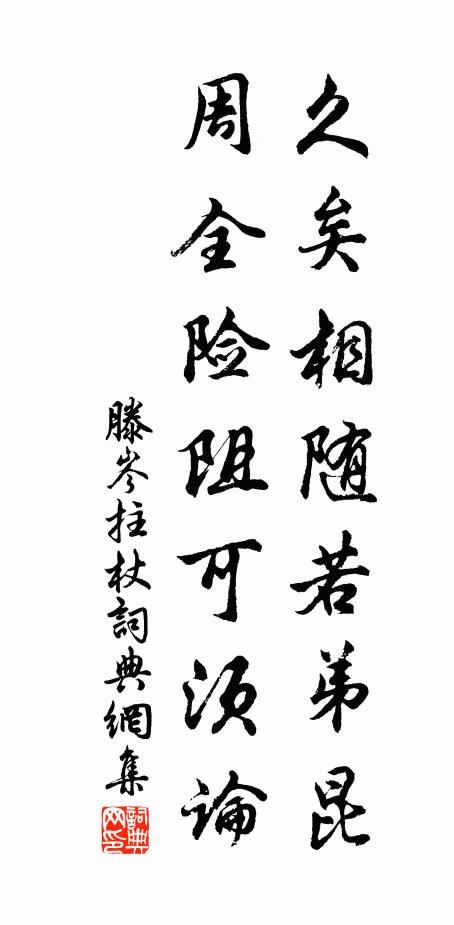 久矣相随若弟昆
周全险阻可须论
滕岑拄杖詞典網集
詞典網印